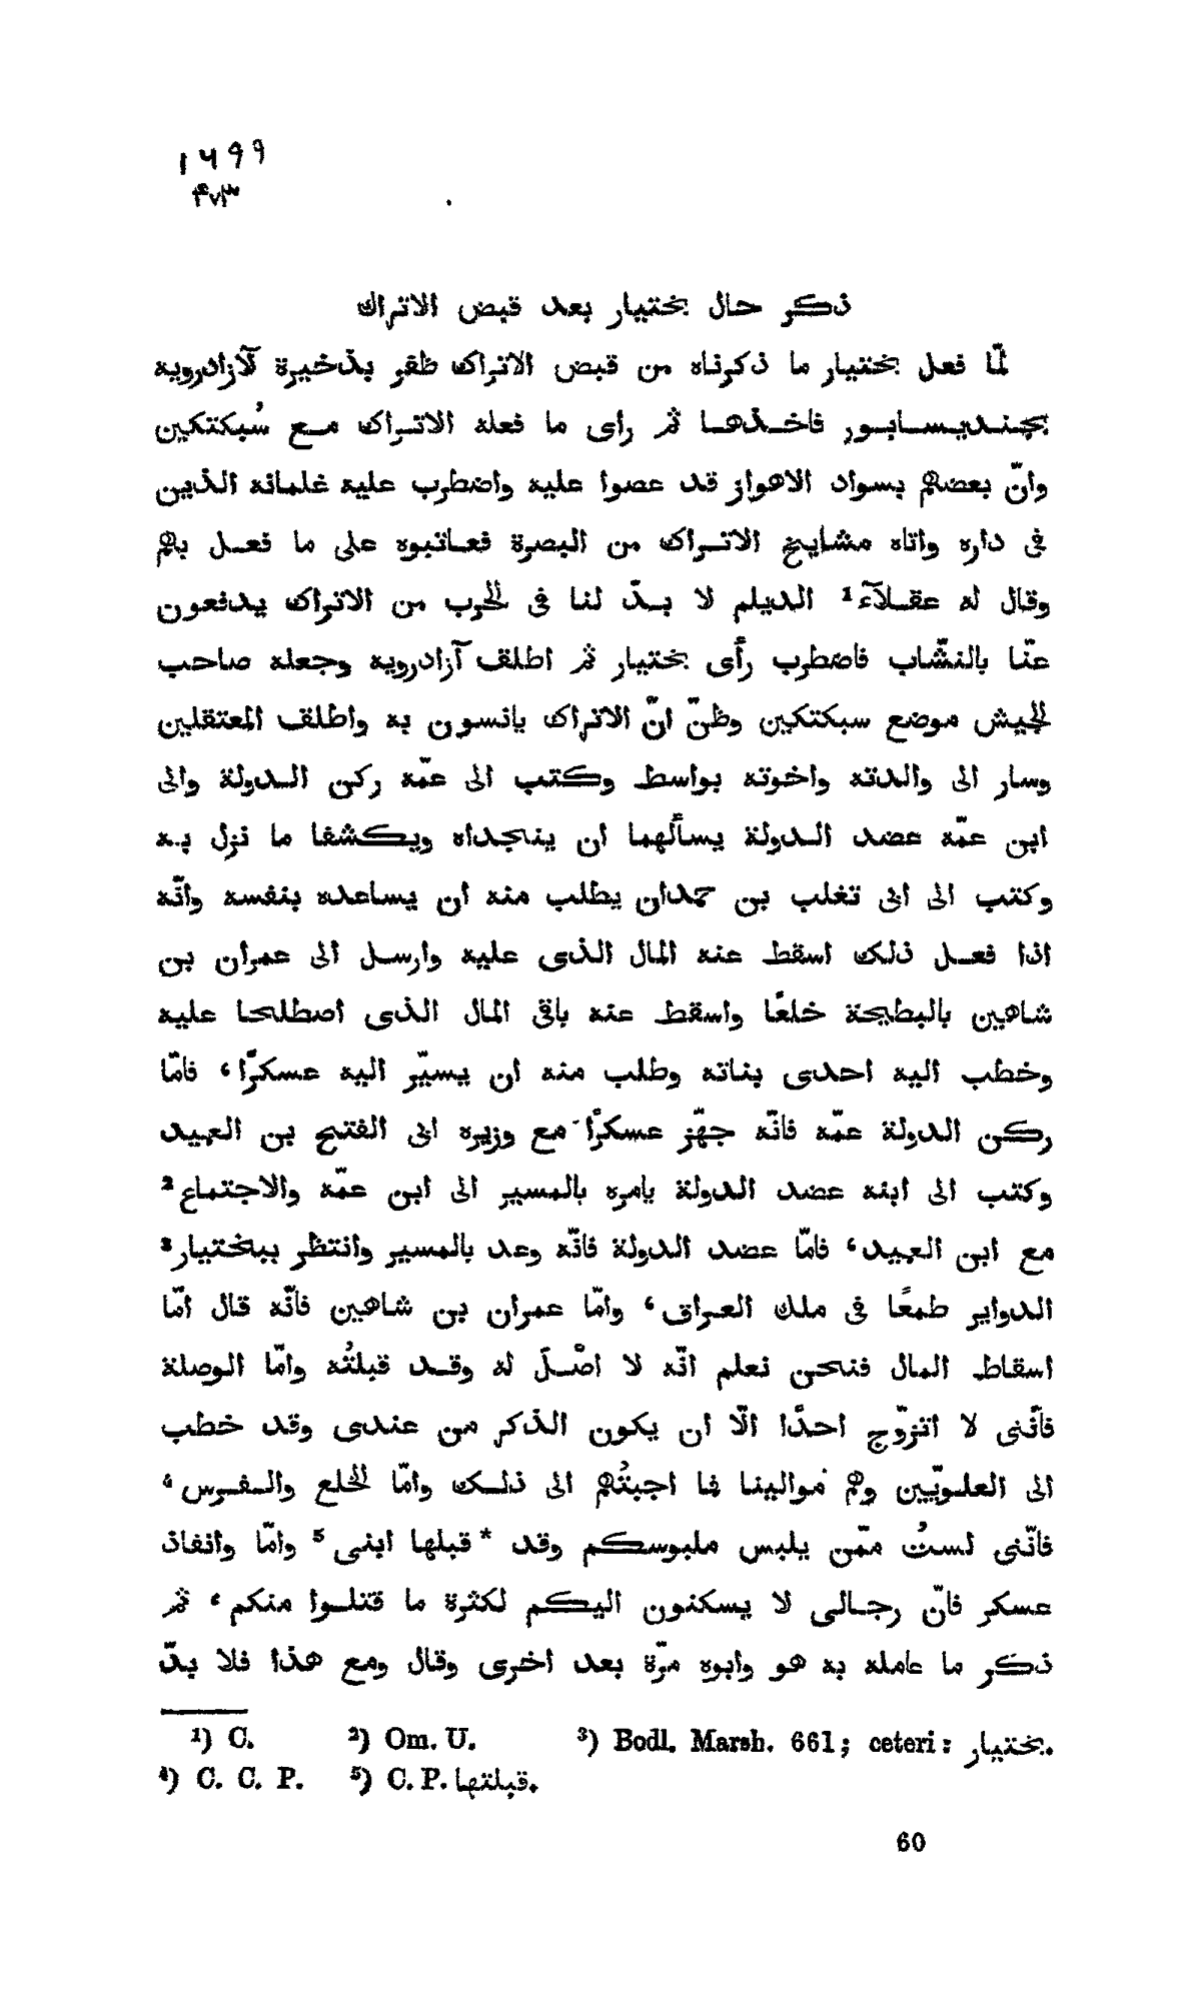 ١٦٩٩
۴٧٣
ذكر حال بختيار بعد قبض الاتراك
لمّا فعل بختيار ما ذكرناه من قبض الاتراك ظفر بذخيرة لآزادرويه
بجنديسابور فاخذها ثمّ رأى ما فعله الاتراك مع سُبكتكين
وانّ بعضهم بسواد الاهواز قد عصوا عليه واضطرب عليه غلمانه الذين
فى داره واتاه مشايخ الاتراك من البصرة فعاتبوه على ما فعل بهم
وقال له عقلآء ¹ الديلم لا بدّ لنا فى الحرب من الاتراك يدفعون
عنّا بالنشّاب فاضطرب رأى بختيار ثمّ اطلق آزادرويه وجعله صاحب
الجيش موضع سبكتكين وظنّ انّ الاتراك يانسون به واطلق المعتقلين
وسار الى والدته واخوته بواسط وكتب الى عمّه ركن الدولة والى
ابن عمّه عضد الدولة يسألهما ان ينجداه ويكشفا ما نزل به
وكتب الى ابى تغلب بن حمدان يطلب منه ان يساعده بنفسه وانّه
اذا فعل ذلك اسقط عنه المال الذى عليه وارسل الى عمران بن
شاهين بالبطيحة خلعًا واسقط عنه باقى المال الذى اصطلحا عليه
وخطب اليه احدى بناته وطلب منه ان يسيّر اليه عسكرًا، فامّا
ركن الدولة عمّه فانّه جهّز عسكرًا مع وزيره ابى الفتح بن العميد
وكتب الى ابنه عضد الدولة يامره بالمسير الى ابن عمّه والاجتماع ²
مع ابن العميد، فامّا عضد الدولة فانّه وعد بالمسير وانتظر ببختيار ³
الدواير طمعًا فى ملك العراق، وامّا عمران بن شاهين فانّه قال امّا
اسقاط المال فنحن نعلم انّه لا اصْلَ له وقد قبلتُه وامّا الوصلة
فانّنى لا اتزوّج احدًا الّا ان يكون الذكر من عندى وقد خطب
الى العلويّين وهم موالينا فما اجبتُهم الى ذلك وامّا الخلع والفرس ⁴
فانّنى لستُ ممّن يلبس ملبوسكم وقد * قبلها ابنى ⁵ وامّا وانفاذ
عسكر فانّ رجالى لا يسكنون اليكم لكثرة ما قتلوا منكم، ثمّ
ذكر ما عامله به هو وابوه مرّة بعد اخرى وقال ومع هذا فلا بدّ
¹) C. ²) Om. U. ³) Bodl. Marsh. 661; ceteri: بختيار.
⁴) C. C. P. ⁵) C. P. قبلتها.
60